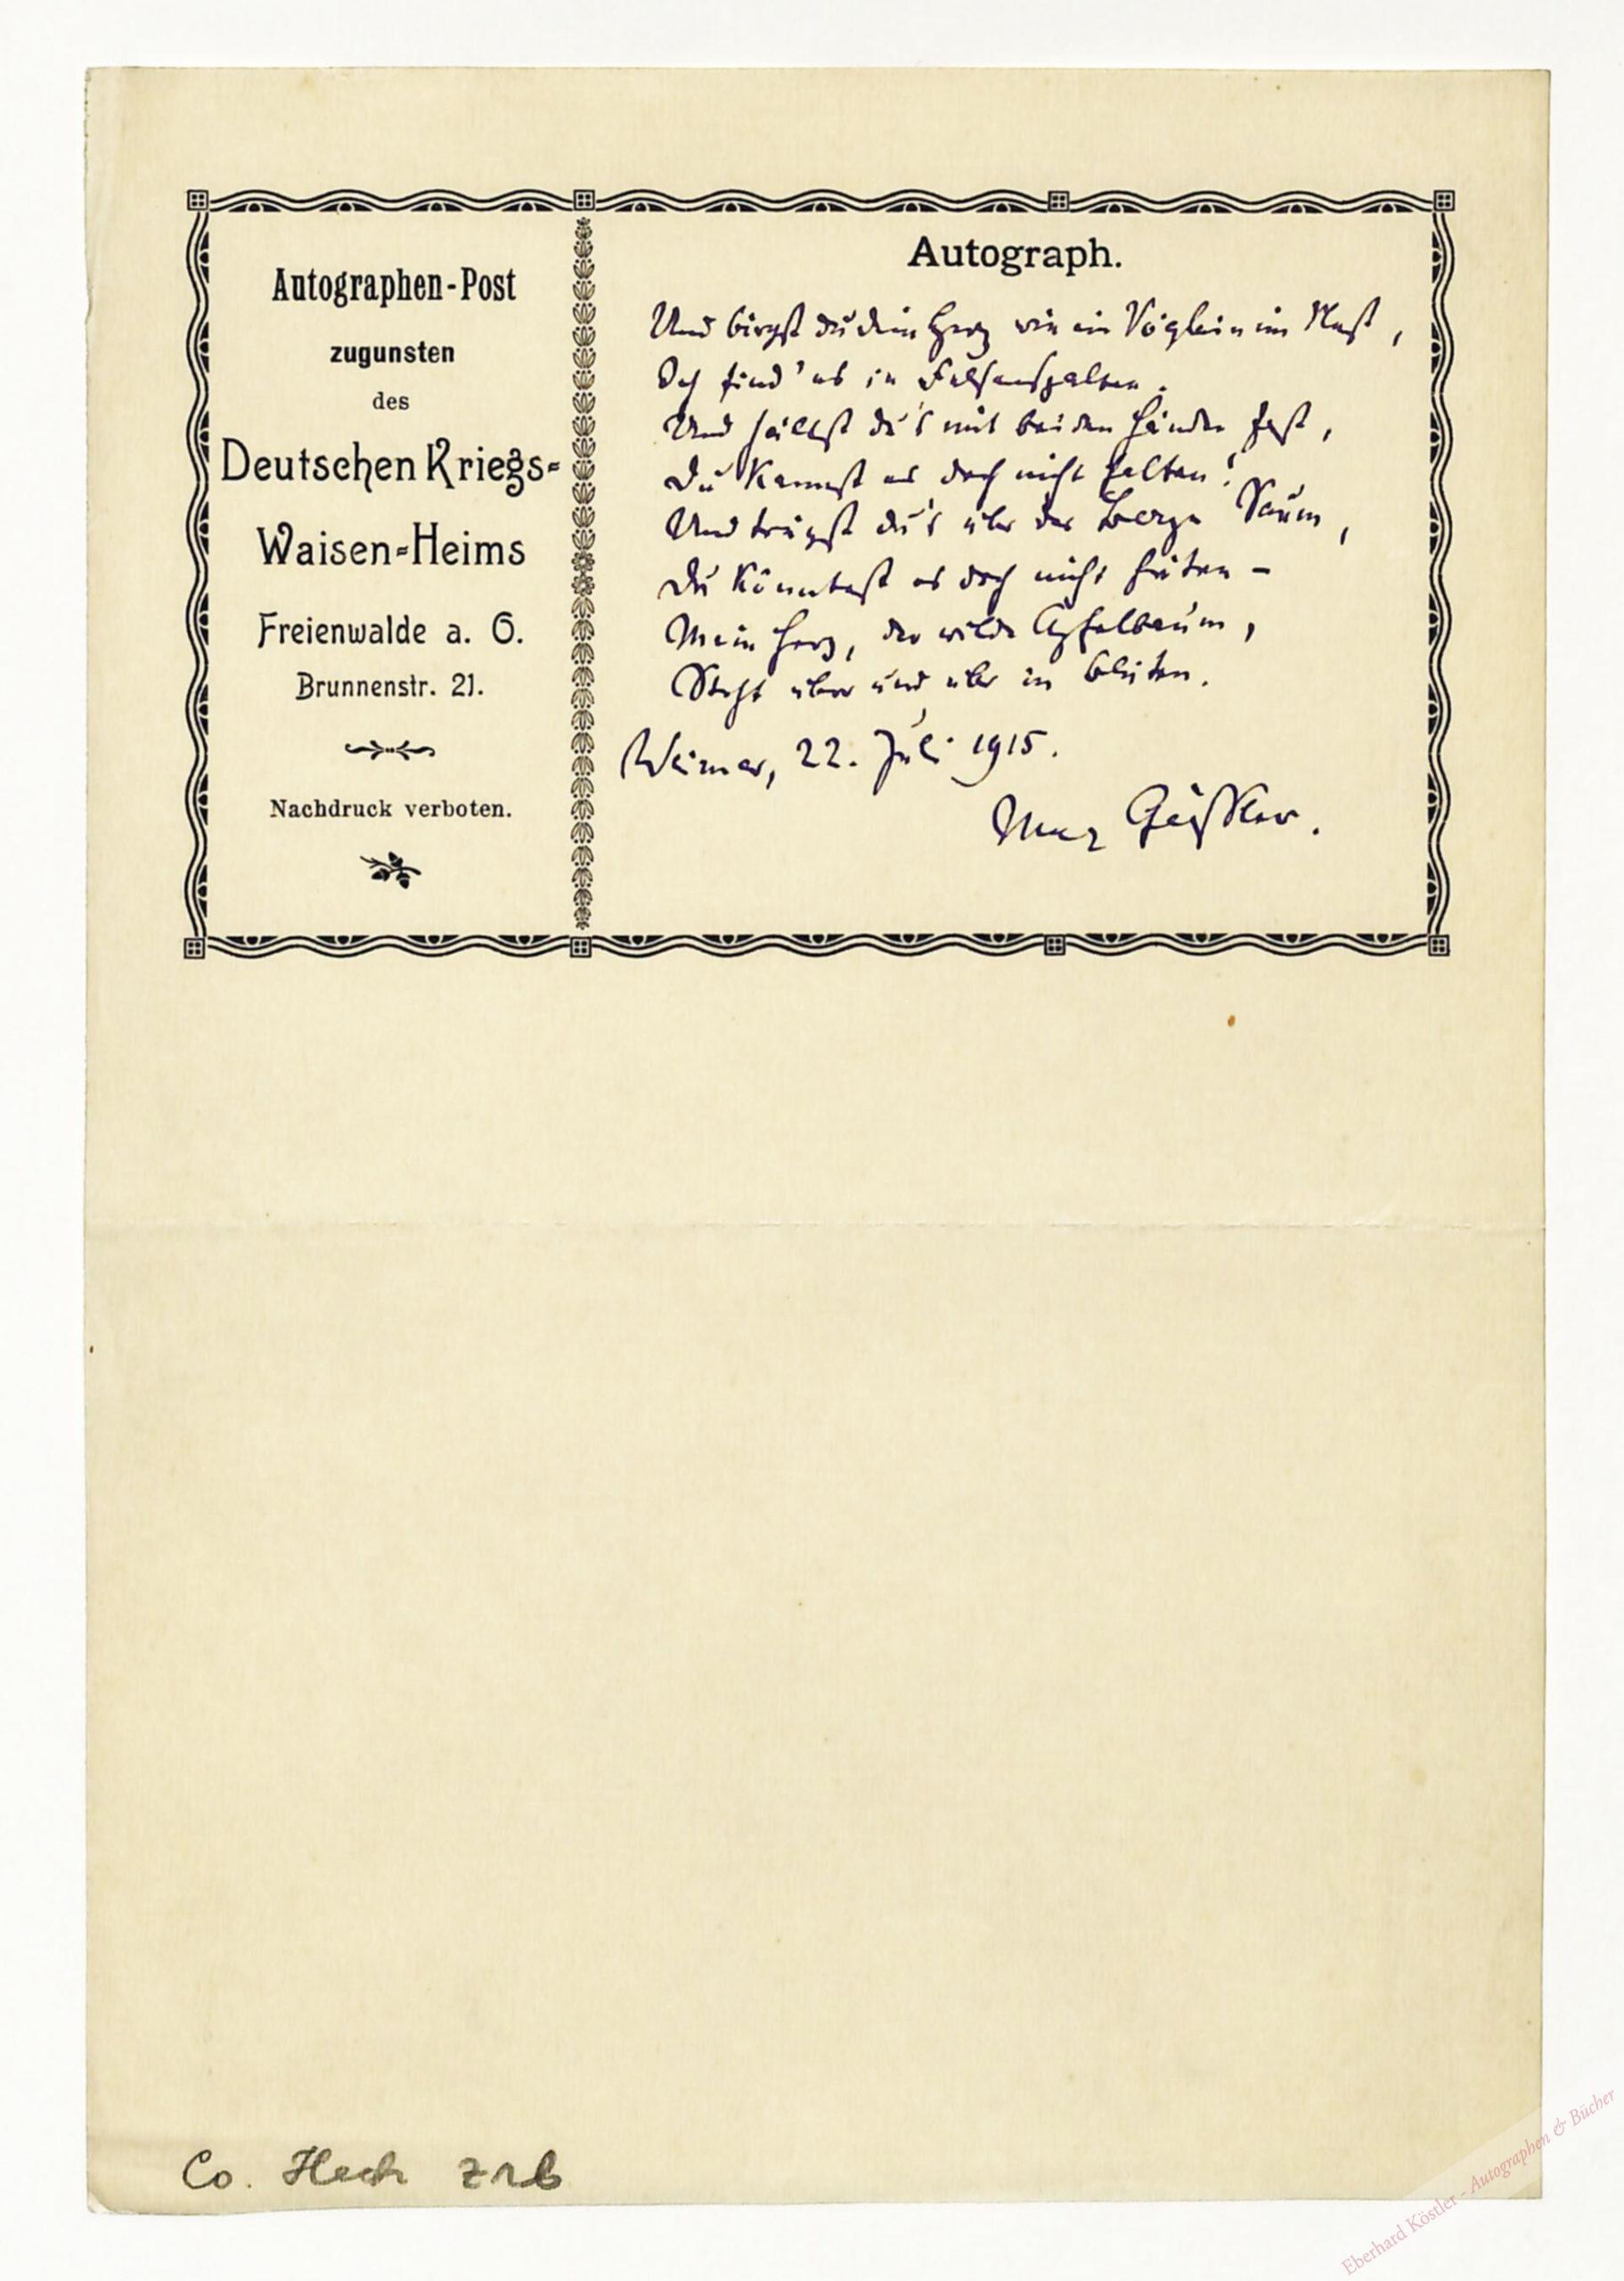 Autographen-Post
zugunsten
des
Deutschen Kriegs-
Waisen-Heims
Freienwalde a. O.
Brunnenstr. 21.
Nachdruck verboten.
Autograph.
Und birgst du dein Herz wie ein Vöglein im Nest,
Ich find' es in Felsenspalten.
Und hältst du's mit beiden Händen fest,
Du kannst es doch nicht halten!
Und trügst du's über der Berge Saum,
Du könntest es doch nicht hüten –
Mein Herz, der wilde Apfelbaum,
Steht über und über in Blüten.
Weimar, 22. Juli 1915.
Max Geißler.
Co.
Eberhard Köstler - Autographen & Bücher